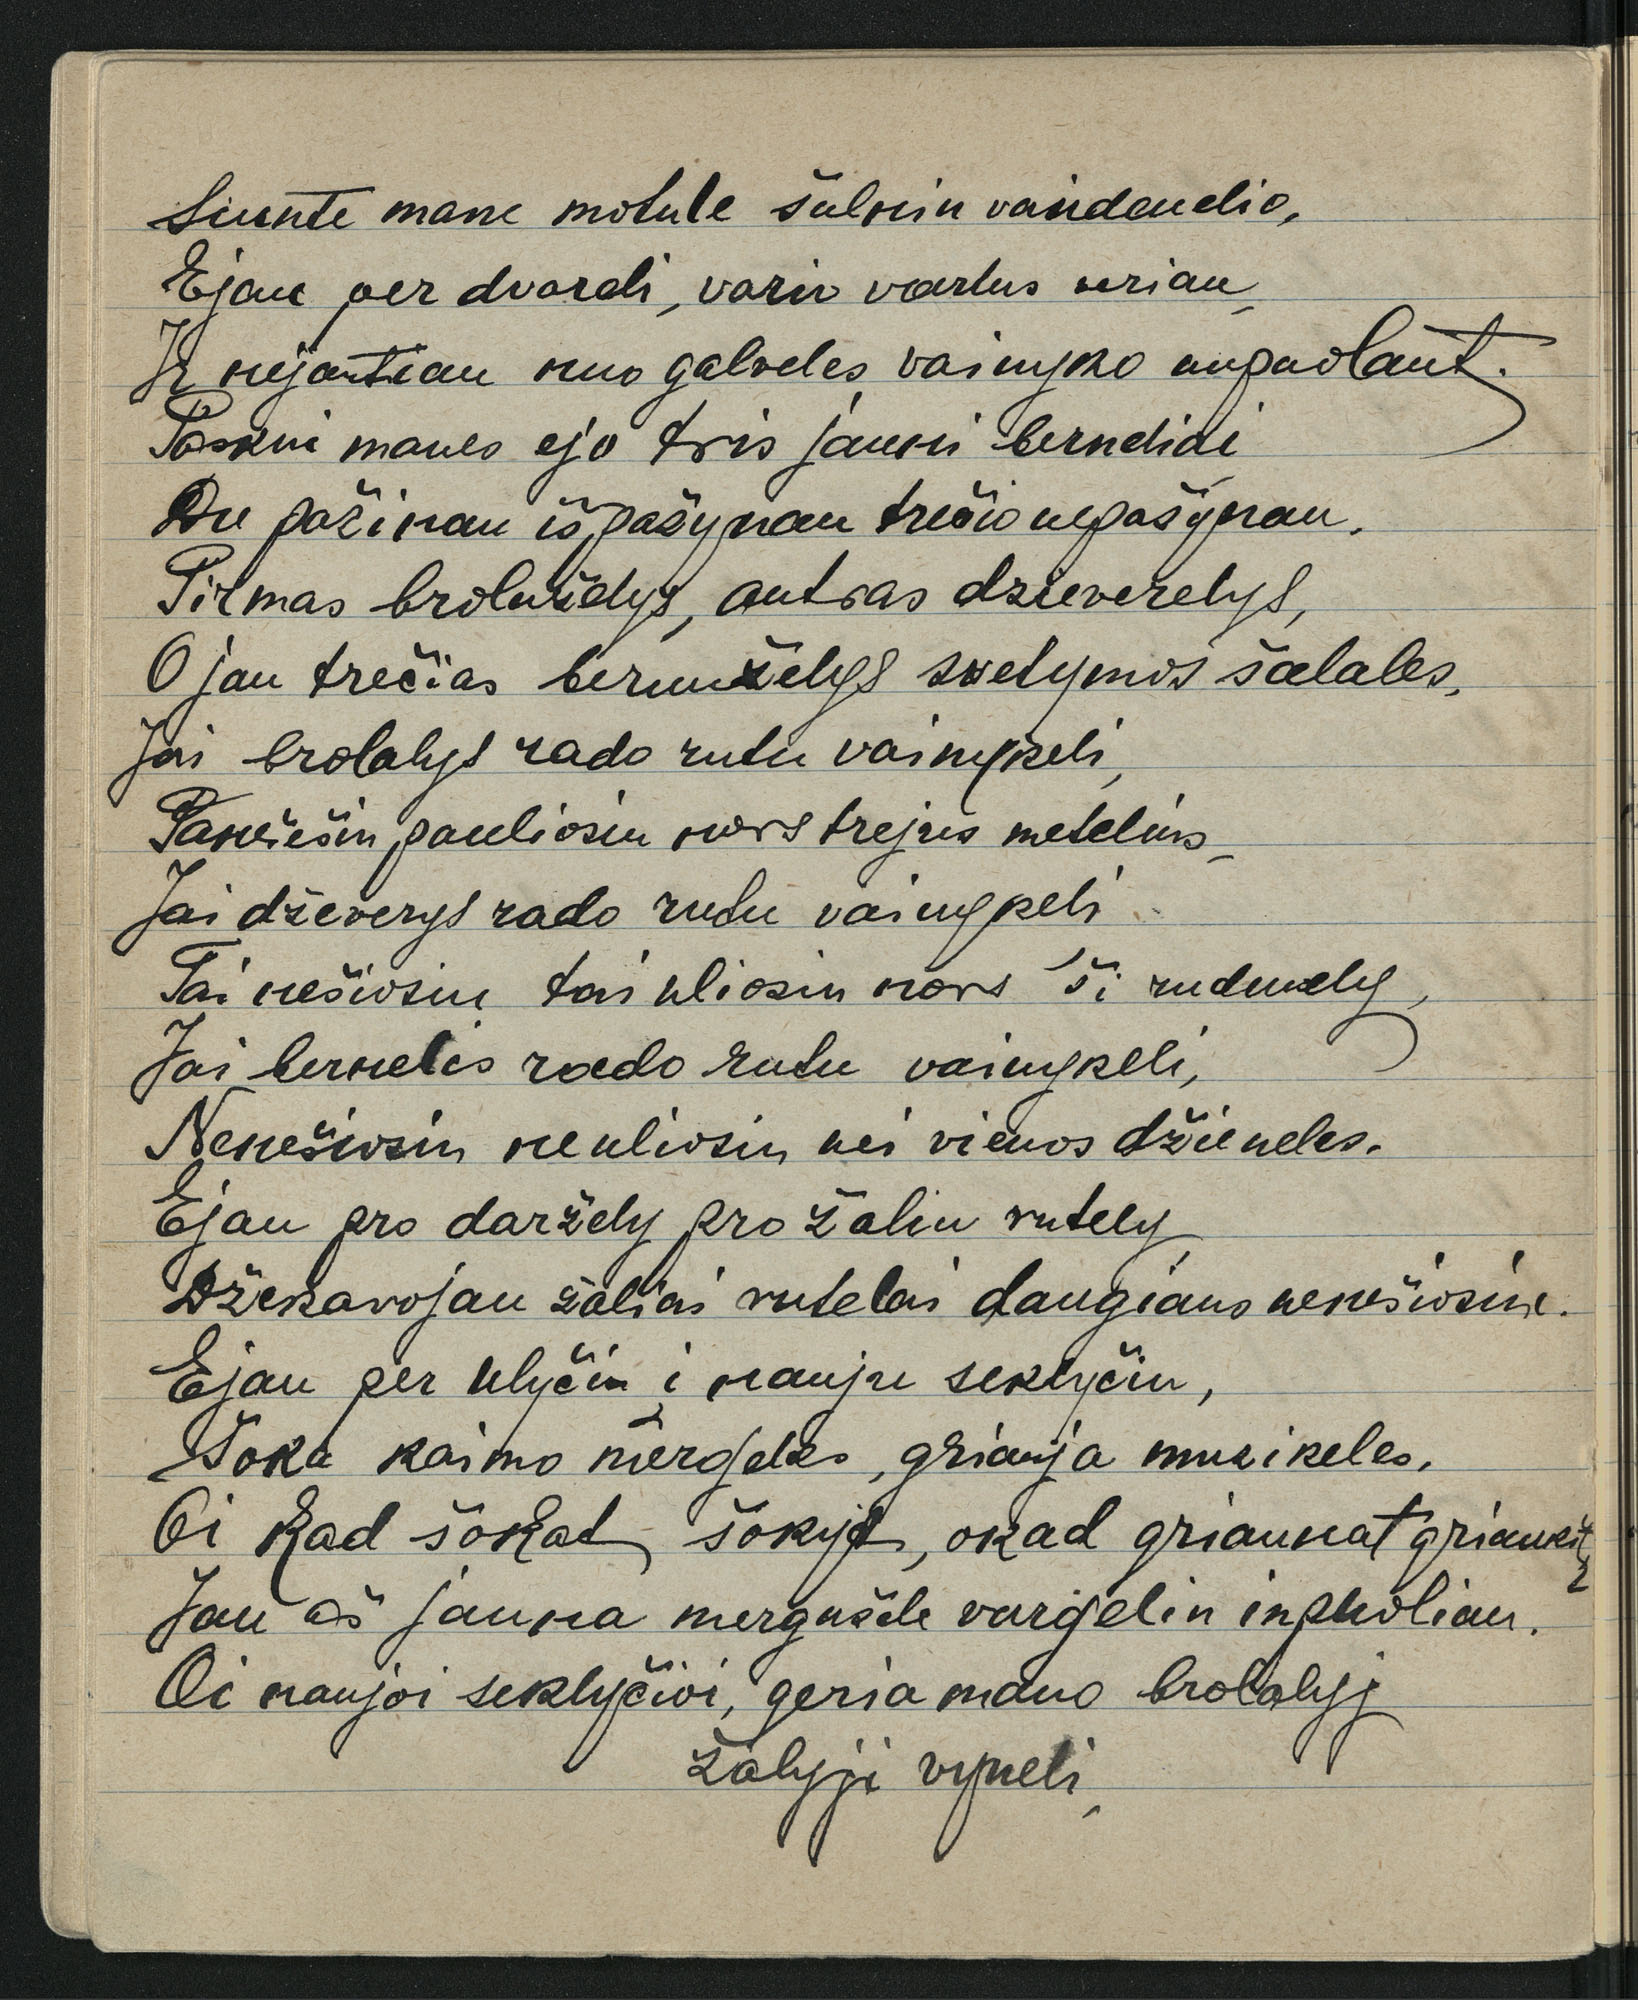 Siunte mane motule šulnin vandenelio,
Ejau per dvareli, varin vartus vėriau,
Ir nejautiau nuo galveles vainyko nupuolant.
Paskui manes ejo tris jauni berneliai
Du pažinau išpažynau trečio nepažynau.
Pirmas brolužėlys, antras dzieverelys,
O jau trečias bernužėlys svetymos šalales,
Jai brolalys rado rutu vainykeli,
Panešiosiu pauliosiu nors trejus metelius,
Jai dževerys rado rutu vainykeli
Tai nešiosiu tai uliosiu nors ši rudenely,
Jai bernelis rado rutu vainykeli,
Nenešiosiu neuliosiu nei vienos džieneles.
Ejau pro daržely pro žaliu rutely
Džekavojau žaliai rutelai daugiaus nenešiosiu.
Ejau per ulyčiu i nauju seklyčiu,
Šoka kaimo mergeles, griauja muzikeles,
Oi kad šokat šokyt, o kad griaunat griaukit
Jau aš jauna merguželе vargelin inpuoliau.
Oi naujoi seklyčioi, geria mano brolalyj
žalyji vyneli,